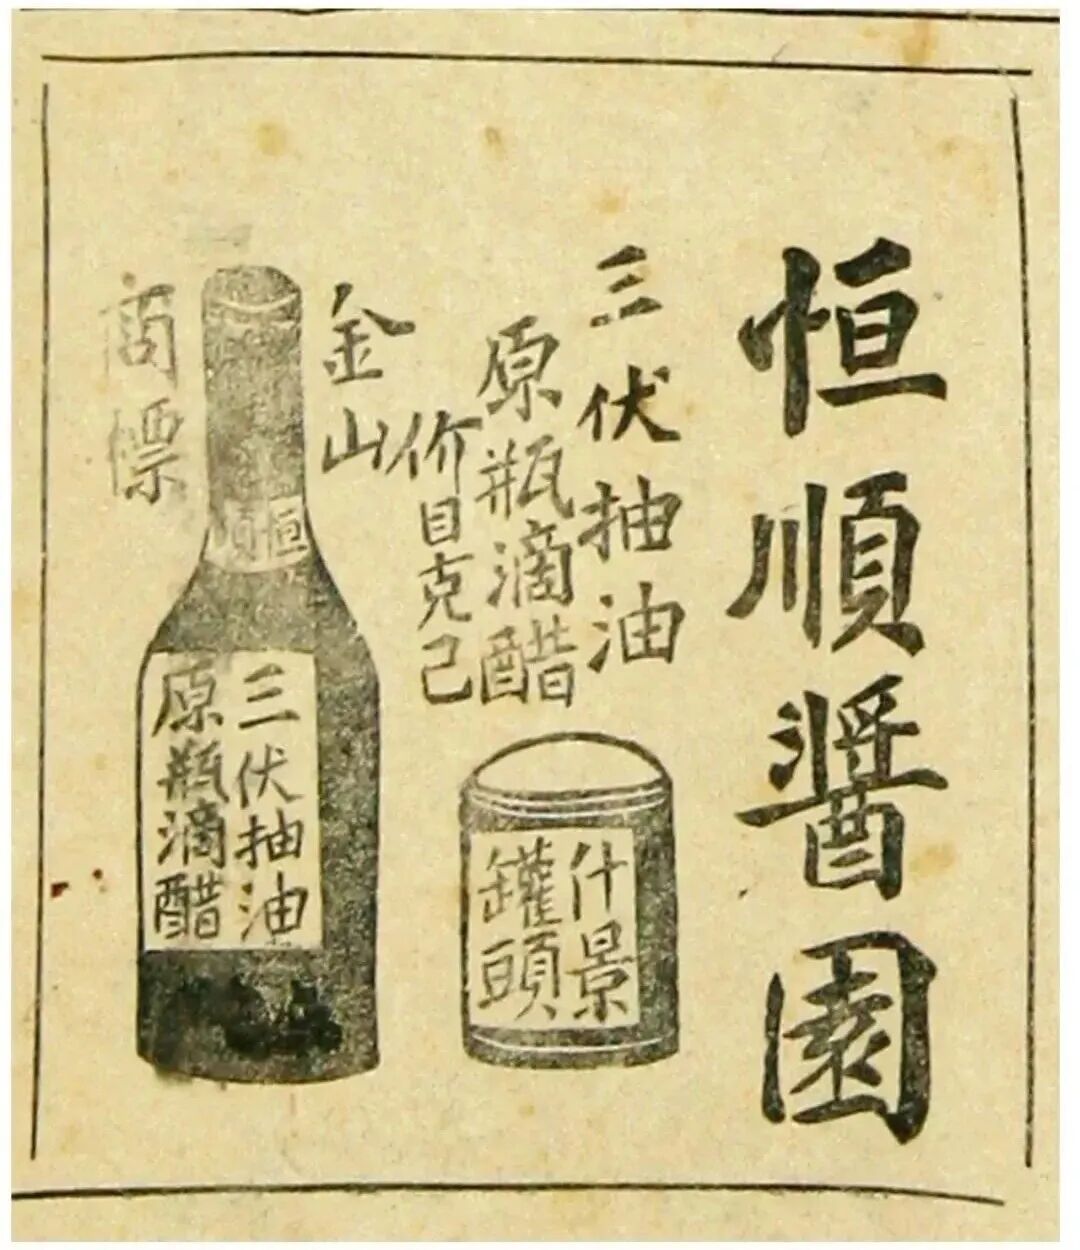 恒順醬園
三伏抽油
原瓶滴醋
价目克己
金山
商標
恒順
三伏抽油
原瓶滴醋
什景
罐頭